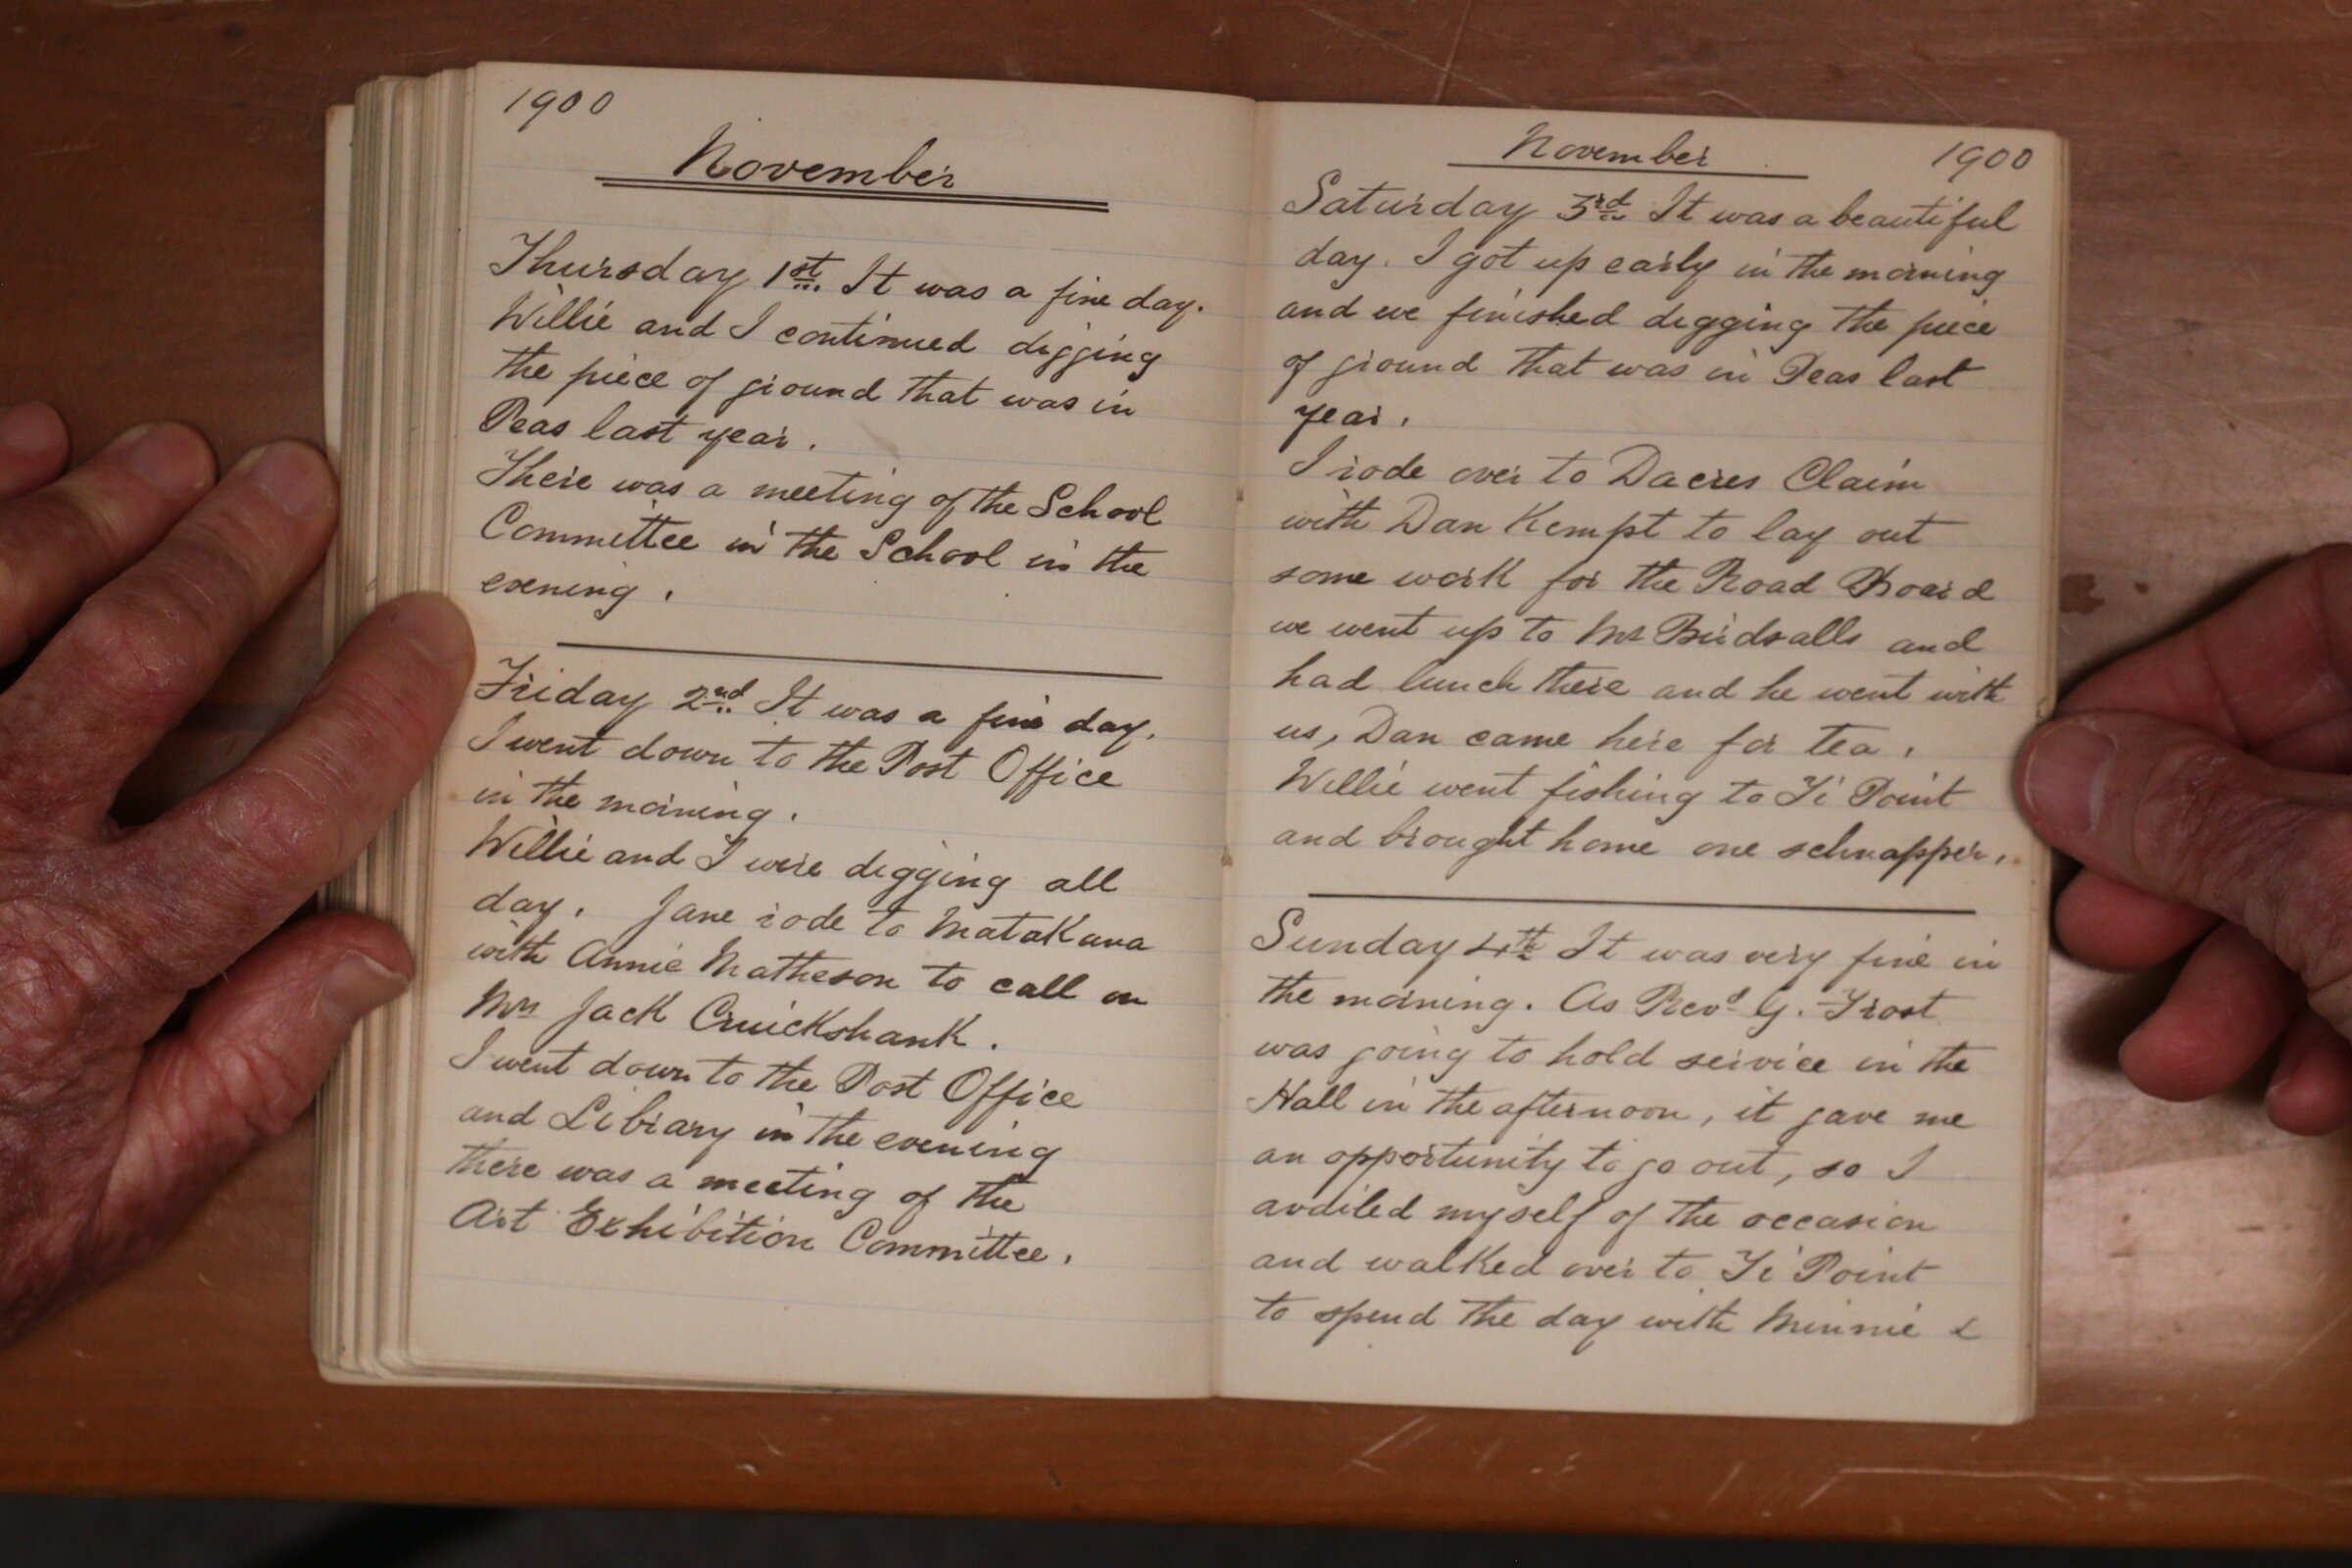 1900
November
Thursday 1st. It was a fine day.
Willie and I continued digging
the piece of ground that was in
Peas last year.
There was a meeting of the School
Committee in the School in the
evening.
Friday 2nd. It was a fine day.
I went down to the Post Office
in the morning.
Willie and I were digging all
day. Jane rode to Matakana
with Annie Matheson to call on
Mrs Jack Cruickshank.
I went down to the Post Office
and Library in the evening
there was a meeting of the
Art Exhibition Committee.
November 1900
Saturday 3rd It was a beautiful
day. I got up early in the morning
and we finished digging the piece
of ground that was in Peas last
year.
I rode over to Dacres Claim
with Dan Kempt to lay out
some work for the Road Board
we went up to Mr Birdsalls and
had lunch there and he went with
us, Dan came here for tea.
Willie went fishing to Ti Point
and brought home one schnapper.
Sunday 4th It was very fine in
the morning. As Revd G. Frost
was going to hold service in the
Hall in the afternoon, it gave me
an opportunity to go out, so I
availed myself of the occasion
and walked over to Ti Point
to spend the day with Minnie &